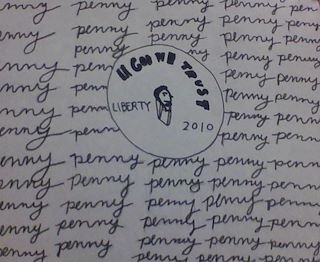 penny penny penny penny
enny penny penny penny penny
penny penny penny penny
enny penny penny penny
enny penny penny penny
enny penn penny penny
enny penn penny penny
IN GOD WE TRUST
LIBERTY
2010
enny penny penny penny penny
enny penny penny penny penny
enny penny penny penny penny
enny penny penny penny penny
enny penny penny penny penny